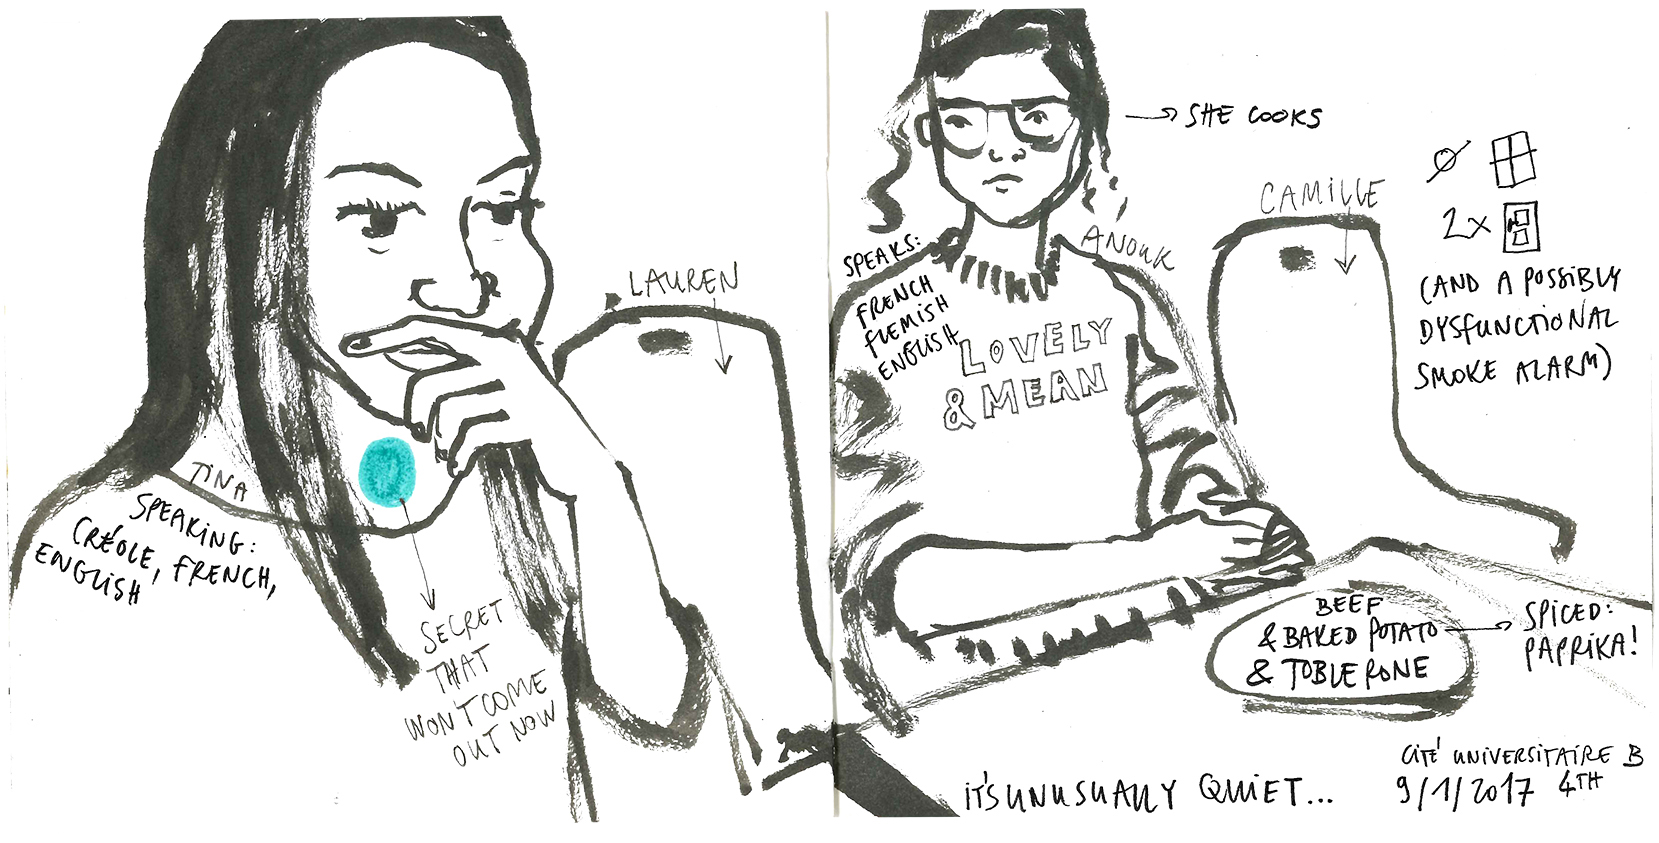 TINA
SPEAKING:
CRÉOLE, FRENCH,
ENGLISH
SECRET
THAT
WON'T COME
OUT NOW
LAUREN
SPEAKS:
FRENCH
FLEMISH
ENGLISH
LOVELY
& MEAN
ANOUK
→ SHE COOKS
CAMILLE
2x
(AND A POSSIBLY
DYSFUNCTIONAL
SMOKE ALARM)
BEEF
& BAKED POTATO
& TOBLERONE
SPICED:
PAPRIKA!
IT'S UNUSUALLY QUIET...
CITÉ UNIVERSITAIRE B
9/1/2017 4TH